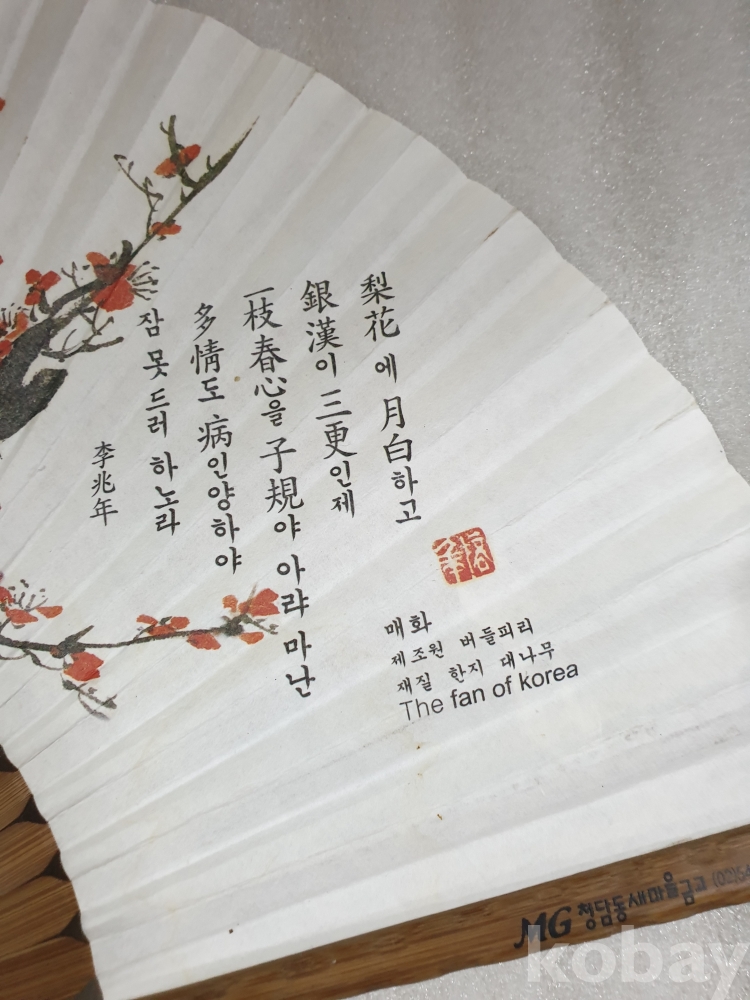 梨花에 月白하고
銀漢이 三更인제
一枝春心을 子規야 아랴마난
多情도 病인양하야
잠 못 드러 하노라
李兆年
매화
제조원 버들피리
재질 한지 대나무
The fan of korea
MG 청담동새마을금고 (02)54
kobay